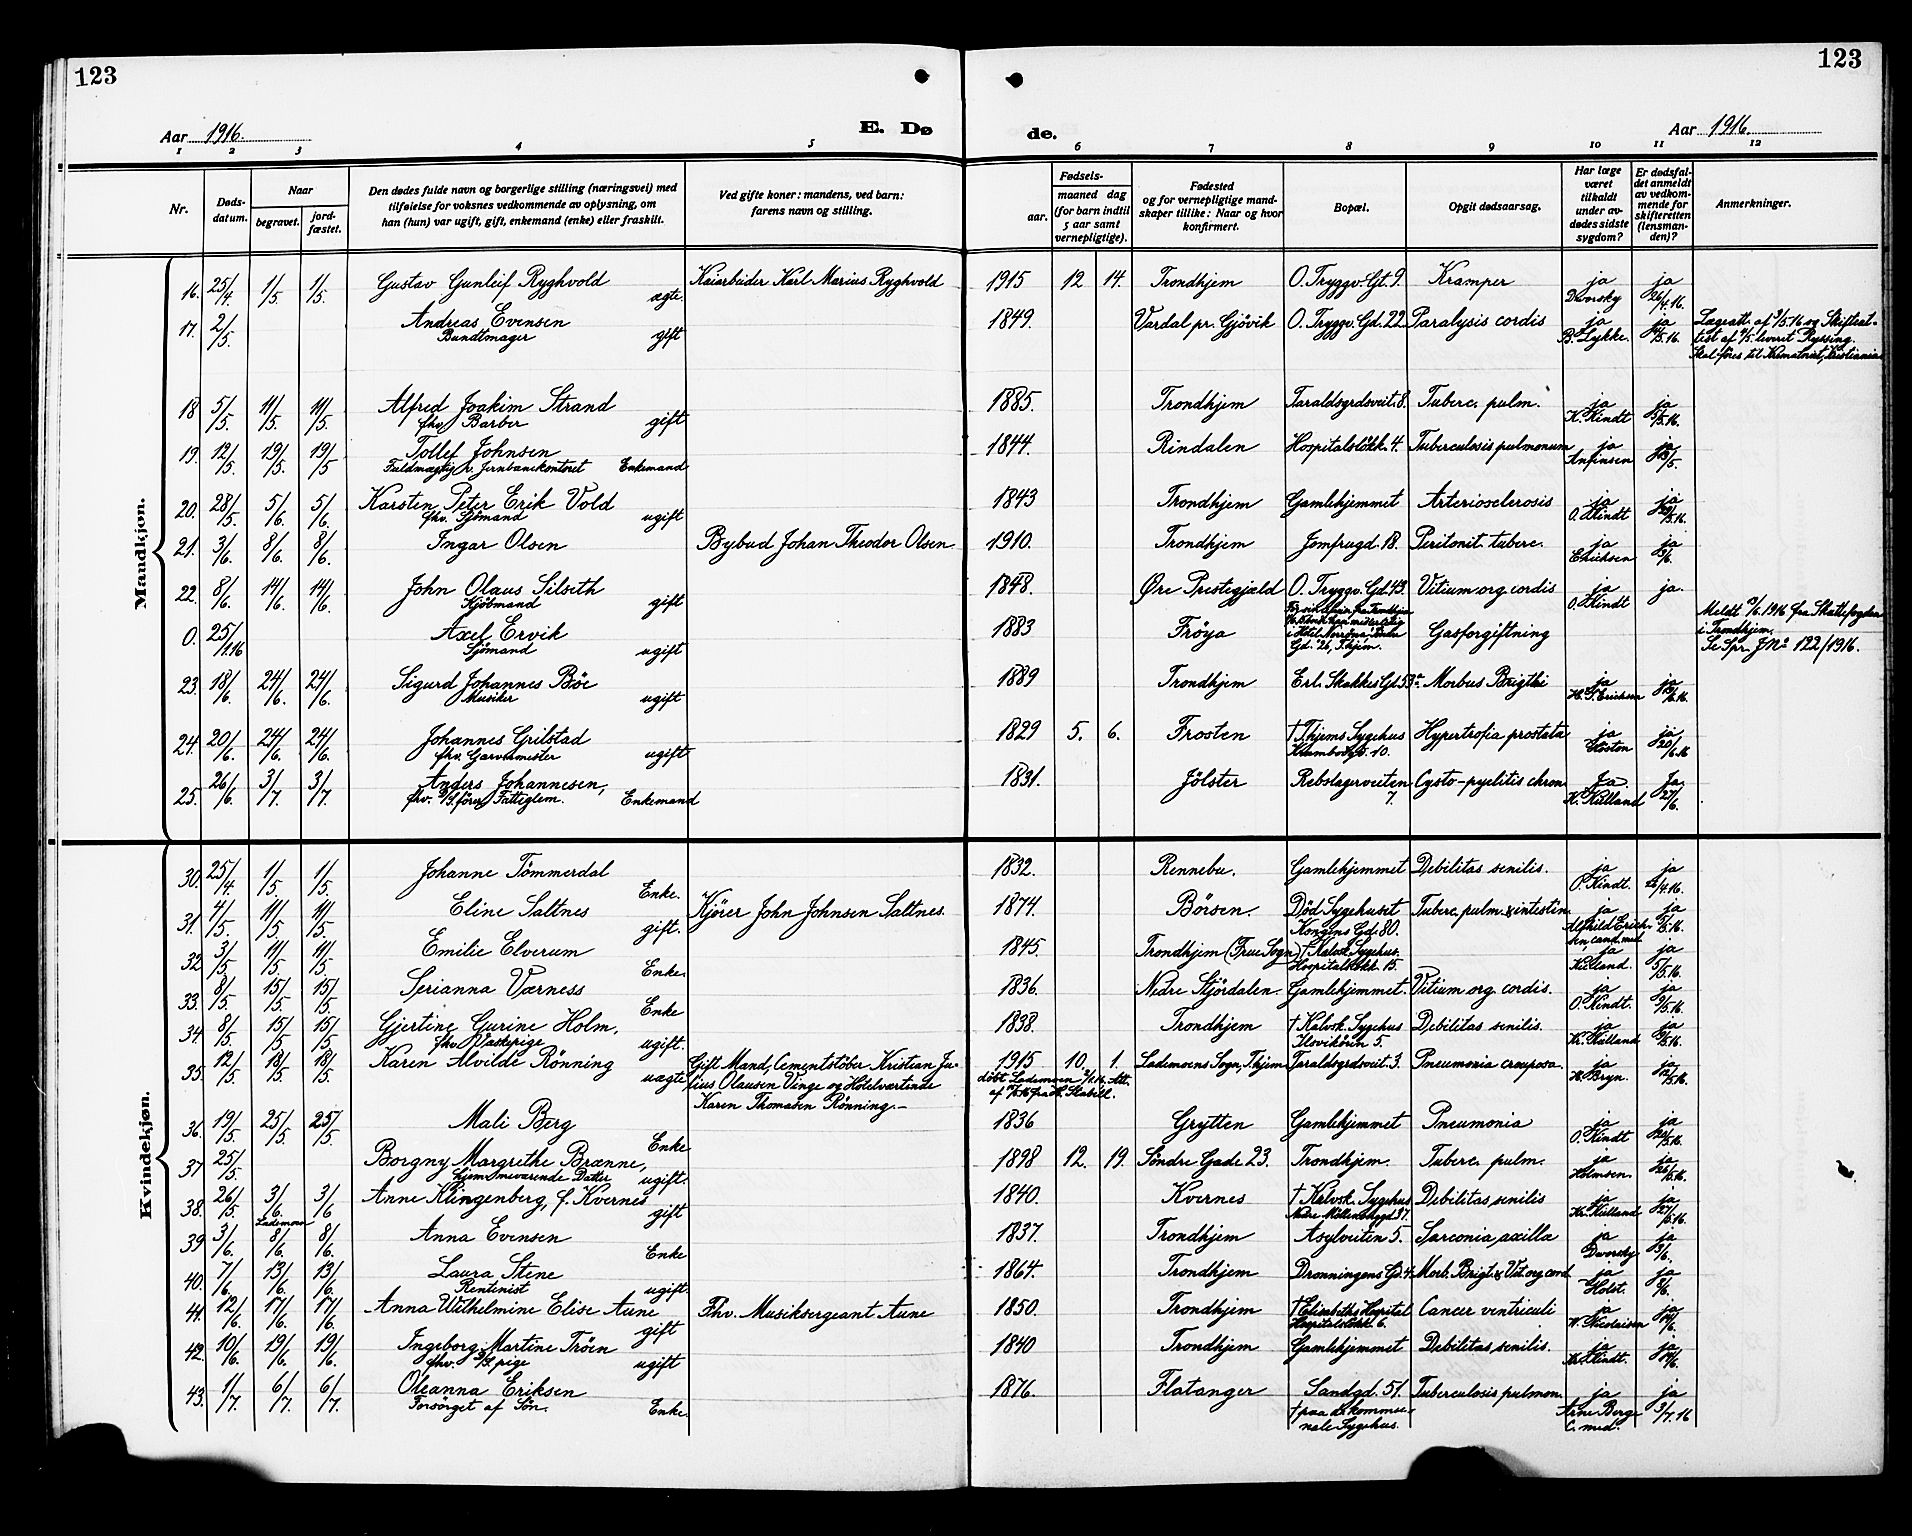 123
123
Aar 1916.
E. Dø
de.
Aar 1916.
1 2 3 4 5 6 7 8 9 10 11 12
Nr.
Døds-
datum.
Naar
begravet.
jord-
fæstet.
Den dødes fulde navn og borgerlige stilling (næringsvei) med
tilføielse for voksnes vedkommende av oplysning, om
han (hun) var ugift, gift, enkemand (enke) eller fraskilt.
Ved gifte koner: mandens, ved barn:
farens navn og stilling.
Fødsels-
aar.
maaned dag
(for barn indtil
5 aar samt
vernepligtige).
Fødested
og for vernepligtige mand-
skaper tillike: Naar og hvor
konfirmert.
Bopæl.
Opgit dødsaarsag.
Har læge
været
tilkaldt
under av-
dødes sidste
sygdom?
Er dødsfal-
det anmeldt
av vedkom-
mende for
skifteretten
(lensman-
den)?
Anmerkninger.
Mandkjøn.
16. 25/4. 1/5. 1/5. Gustav Gunleif Ryghvold ægte. Kaiarbeider Karl Marius Ryghvold 1915 12 14. Trondhjem O. Tryggv. Gt. 9. Kramper ja Dworsky ja 26/4.16.
17. 2/5. Andreas Evensen
Bundtmager gift 1849. Vardal pr. Gjövik O. Tryggv. Gd. 22. Paralysis cordis ja B. Lykke. ja /5.16.
Lægeatt. af 3/5.16 og Skifteat-
test af /5. leveret Ryssing.
Skal føres til Krematoriet, Kristiania
18 5/5. 11/5. 11/5. Alfred Joakim Strand
fhv. Barber gift 1885. Trondhjem Taraldsgrdsveit. 8. Tuberc. pulm. ja K. Kindt ja /5.16.
19. 12/5. 19/5. 19/5 Tollef Johnsen
Fuldmægtig v. Jernbanekontoret Enkemand 1844. Rindalen Hospitalsløkk. 4. Tuberculosis pulmonum ja Anfinsen ja /5.
20. 28/5. 5/6. 5/6. Karsten Peter Erik Vold
fhv. Sjömand ugift 1843 Trondhjem Gamlehjemmet Arteriosclerosis ja O. Kindt ja /5.16.
21. 3/6. 8/6. 8/6. Ingar Olsen Bybud Johan Theodor Olsen 1910. Trondhjem Jomfrugd. 18. Peritonit. tuberc. ja Erichsen ja /6.
22. 8/6. 14/6. 14/6. John Olaus Silseth
Kjöbmand gift 1848. Øre Prestegjæld O. Tryggv. Gd. 43. Vitium org. cordis ja O. Kindt ja.
0. 25/1.16 Axel Ervik
Sjömand ugift 1883 Fröya
i Hotel Norröna, Søndre
Gd. 26, T.hjem. Gasforgiftning
Meldt /6. 1916 fra Skattefogden
i Trondhjem.
Se Spr. J No 122/1916.
23. 18/6. 24/6. 24/6. Sigurd Johannes Böe
Musiker ugift 1889 Trondhjem Erl. Skakkes Gd. 53a. Morbus Brigthi ja H. S. Erichsen ja /6.16.
24. 20/6. 24/6. 24/6. Johannes Grilstad
fhv. Garvermester ugift 1829 5. 6. Frosten † T.hjems Sygehus
Krambodgd. 10. Hypertrofia prostata ja ja 20/6.16
25. 26/6. 3/7. 3/7. Anders Johannesen,
fhv. Fattiglem. Enkemand 1831. Jölster Rebslagerveiten
7. Cysto-pyelitis chron Ja. K. Kulland Ja 27/6.
Kvindekjøn.
30. 25/4. 1/5. 1/5. Johanne Tömmerdal Enke. 1832. Rennebu. Gamlehjemmet Debilitas senilis. ja O. Kindt. ja 26/4.16.
31. 4/5. 11/5. 11/5. Eline Saltnes gift. Kjörer John Johnsen Saltnes. 1874. Börsen. Död Sygehuset
Kongens Gd. 80. Tuberc. pulm. & intestin. ja Alfhild Erich-
sen cand. med ja /5.16.
32 3/5 11/5. 11/5. Emilie Elverum Enke. 1845. Trondhjem (Frue Sogn) † Kalvsk. Sygehus.
Hospitalsløkk. 15. ja Kulland. ja 5/5.16.
33. 8/5 15/5. 15/5. Serianna Værness Enke 1836. Nedre Stjördalen. Gamlehjemmet. Vitium org. cordis. ja O. Kindt. ja 9/5.16.
34 8/5. 15/5. 15/5. Gjertine Gurine Holm,
fhv. Vaskepige ugift. 1838. Trondhjem † Kalvsk. Sygehus
Ilsvikören 5. Debilitas senilis. ja Kr. Kulland ja /5.16.
35. 12/5. 18/5. 18/5. Karen Alvilde Rönning uægte Gift Mand, Cementstöber Kristian Ju-
lius Olausen Vinge og Hotelvartinde
Karen Thomasen Rönning.— 1915 10. 1. Lademoens Sogn, T.hjem Taraldsgrdsveit. 3. Pneumonia crouposa. ja H. Bryn. ja 12/5.16.
36. 19/5. 25/5. 25/5. Mali Berg Enke 1836 Grytten Gamlehjemmet Pneumonia ja O. Kindt ja 20/5.16.
37 25/5. Borgny Margrethe Brænne,
hjemmeværende Datter ugift. 1898 12. 19. Söndre Gade 23. Trondhjem. Tuberc. pulm. ja Holmsen. ja 26/5.16.
38. 26/5. 3/6. Lademoen 3/6 Anne Klingenberg, f. Kvernes gift 1840. Kvernes † Kalvsk. Sygehus
Nedre Möllenbggd. 37. Debilitas senilis ja Kr. Kulland ja 27/5.16.
39 3/6. 8/6. 8/6. Anna Evensen Enke 1837. Trondhjem Asylveiten 5. Sarconia axilla ja Dworsky ja 3/6.
40. 7/6. 13/6. 13/6. Laura Stene
Rentenist ugift. 1864. Trondhjem Dronningens Gd. 4. Morb. Brigt. & Vit. org. cord. ja Holst. ja 8/6.
41. 12/6. 17/6. 17/6. Anna Wilhelmine Elise Aune gift Fhv. Musiksergeant Aune 1850. Trondhjem † Elisabeths Hospital
Hospitalsløkk. 6. Cancer ventriculi ja W. Nicolaisen ja 14/6.
42. 10/6. 19/6. 19/6. Ingeborg Martine Tröen
fhv. pige ugift 1840 Trondhjem Gamlehjemmet Debilitas senilis. ja Kindt. ja 14/6.
43. 1/7. 6/7. 6/7. Oleanna Eriksen
Forsörget af Sön. Enke. 1876. Flatanger Sandgd. 51.
† paa d. kommu-
nale Sygehus. Tuberculosis pulmon. ja Arne Berge
c. med. ja 3/7.16